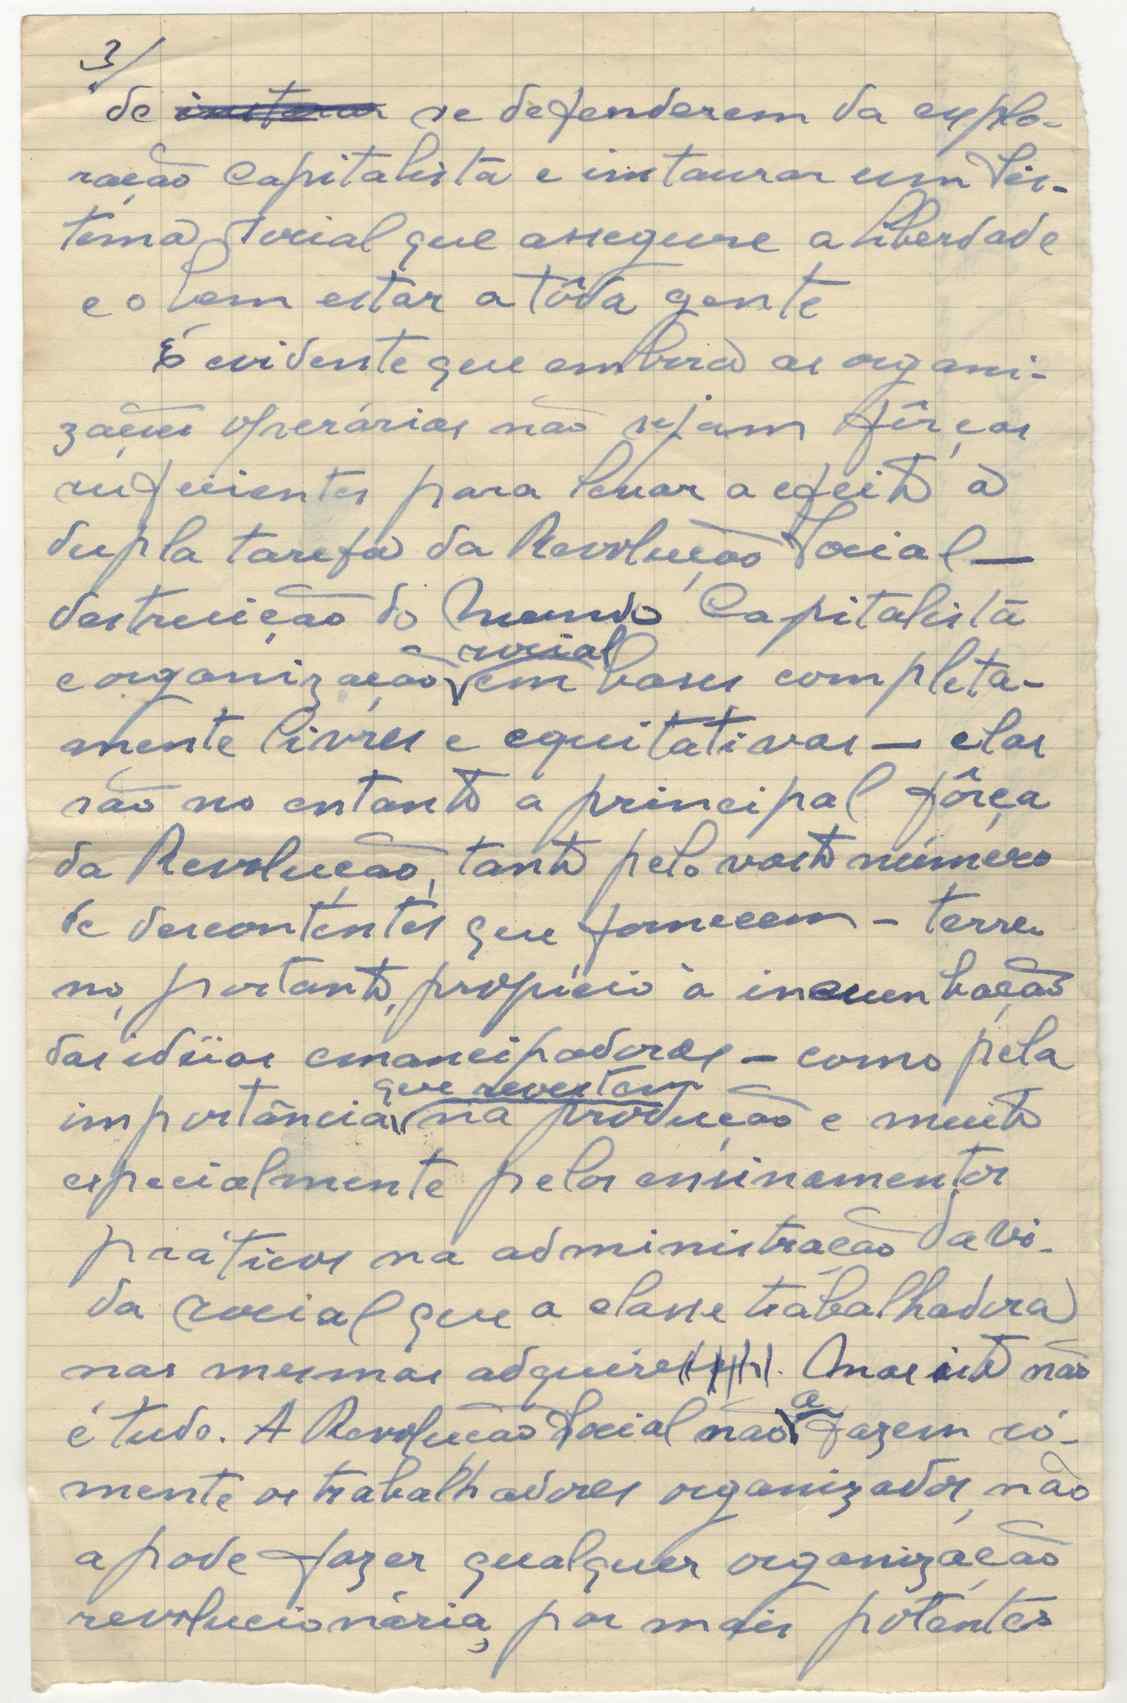 3/
de se defenderem da explo-
ração Capitalista e instaurar um Sis-
tema Social que assegure a liberdade
e o bem estar a tôda gente
É evidente que embora as organi-
zações operárias não sejam fôrças
suficientes para levar a efeito a
dupla tarefa da Revolução Social —
destruição do Mundo Capitalista
e organização social em bases completa-
mente livres e equitativas — elas
são no entanto a principal fôrça
da Revolução, tanto pelo vasto número
de descontentes que fornecem - terre-
no, portanto, propício à incumbação
das idéias emancipadoras — como pela
importância que revestem na produção e muito
especialmente pelos ensinamentos
práticos na administração da vi-
da social que a classe trabalhadora
nas mesmas adquire. Mas isto não
é tudo. A Revolução Social não a fazem só-
mente os trabalhadores organizados, não
a pode fazer qualquer organização
revolucionária, por mais potentes